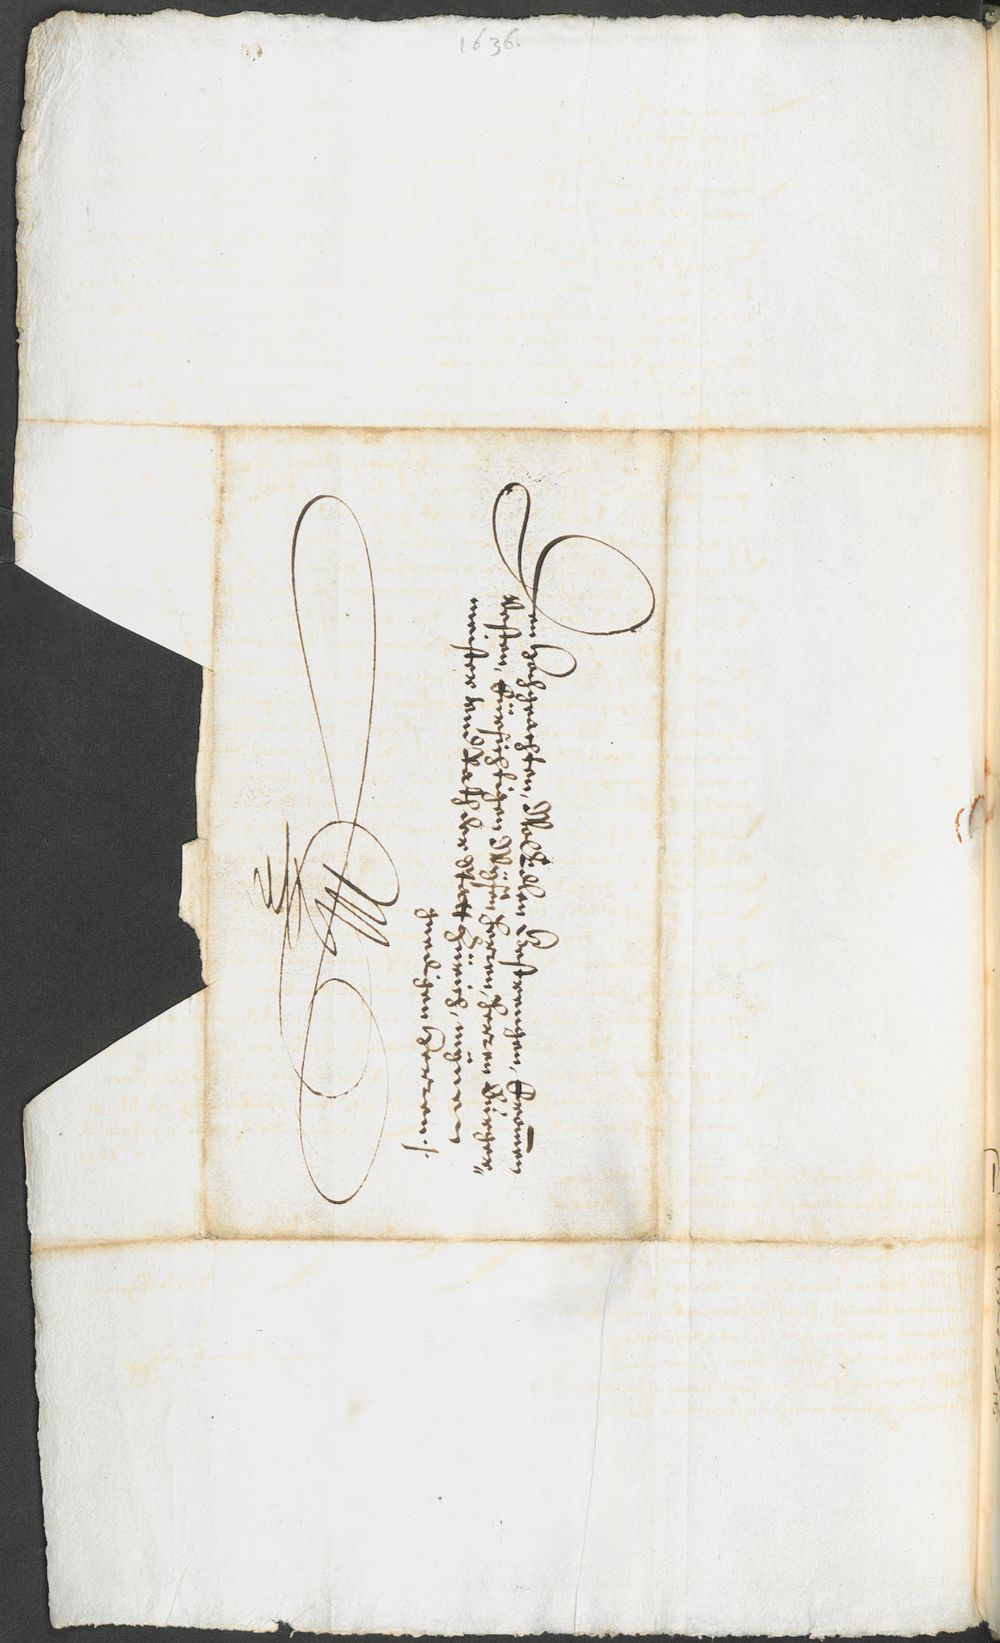 1636.
Den Hochgeachten, WolEdlen Gestrengen, Frommen,
Vesten, Fürsichtigen Wÿsen herren, herren Burger„
meister vnd Rath der Statt Zürich, mÿnen
gnedigen Herren ⁒